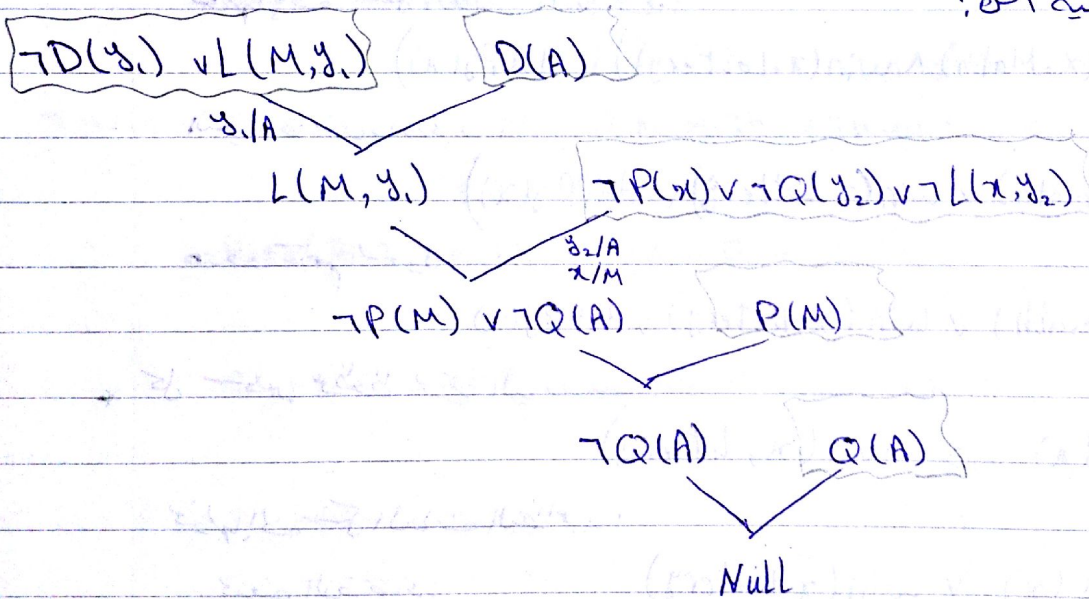 ¬D(y₁) ∨ L(M,y₁) D(A)
y₁/A
L(M,y₁) ¬P(x) ∨ ¬Q(y₂) ∨ ¬L(x,y₂)
y₂/A
x/M
¬P(M) ∨ ¬Q(A) P(M)
¬Q(A) Q(A)
Null